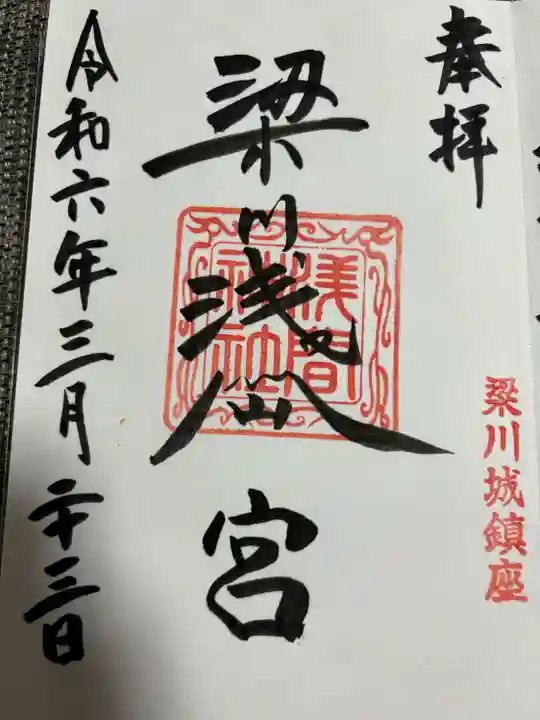 奉拝
梁川城鎮座
梁川浅
宮
浅間
神社
令和六年三月二十三日